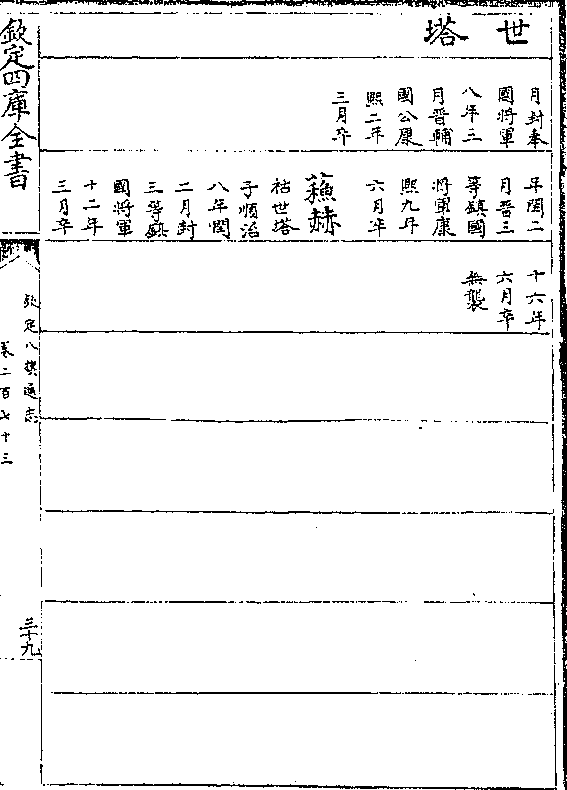 世塔
月封奉
國將軍
八年三
月晉輔
國公康
熙二年
三月卒
年閏二
月晋三
等鎮國
將軍康
熙九年
六月卒
蘓赫
祜世塔
子順治
八年閏
二月封
三等鎮
國將軍
十二年
三月卒
十六年
六月卒
無襲
欽定四庫全書
欽定八旗通志
卷二百七十三
三十九